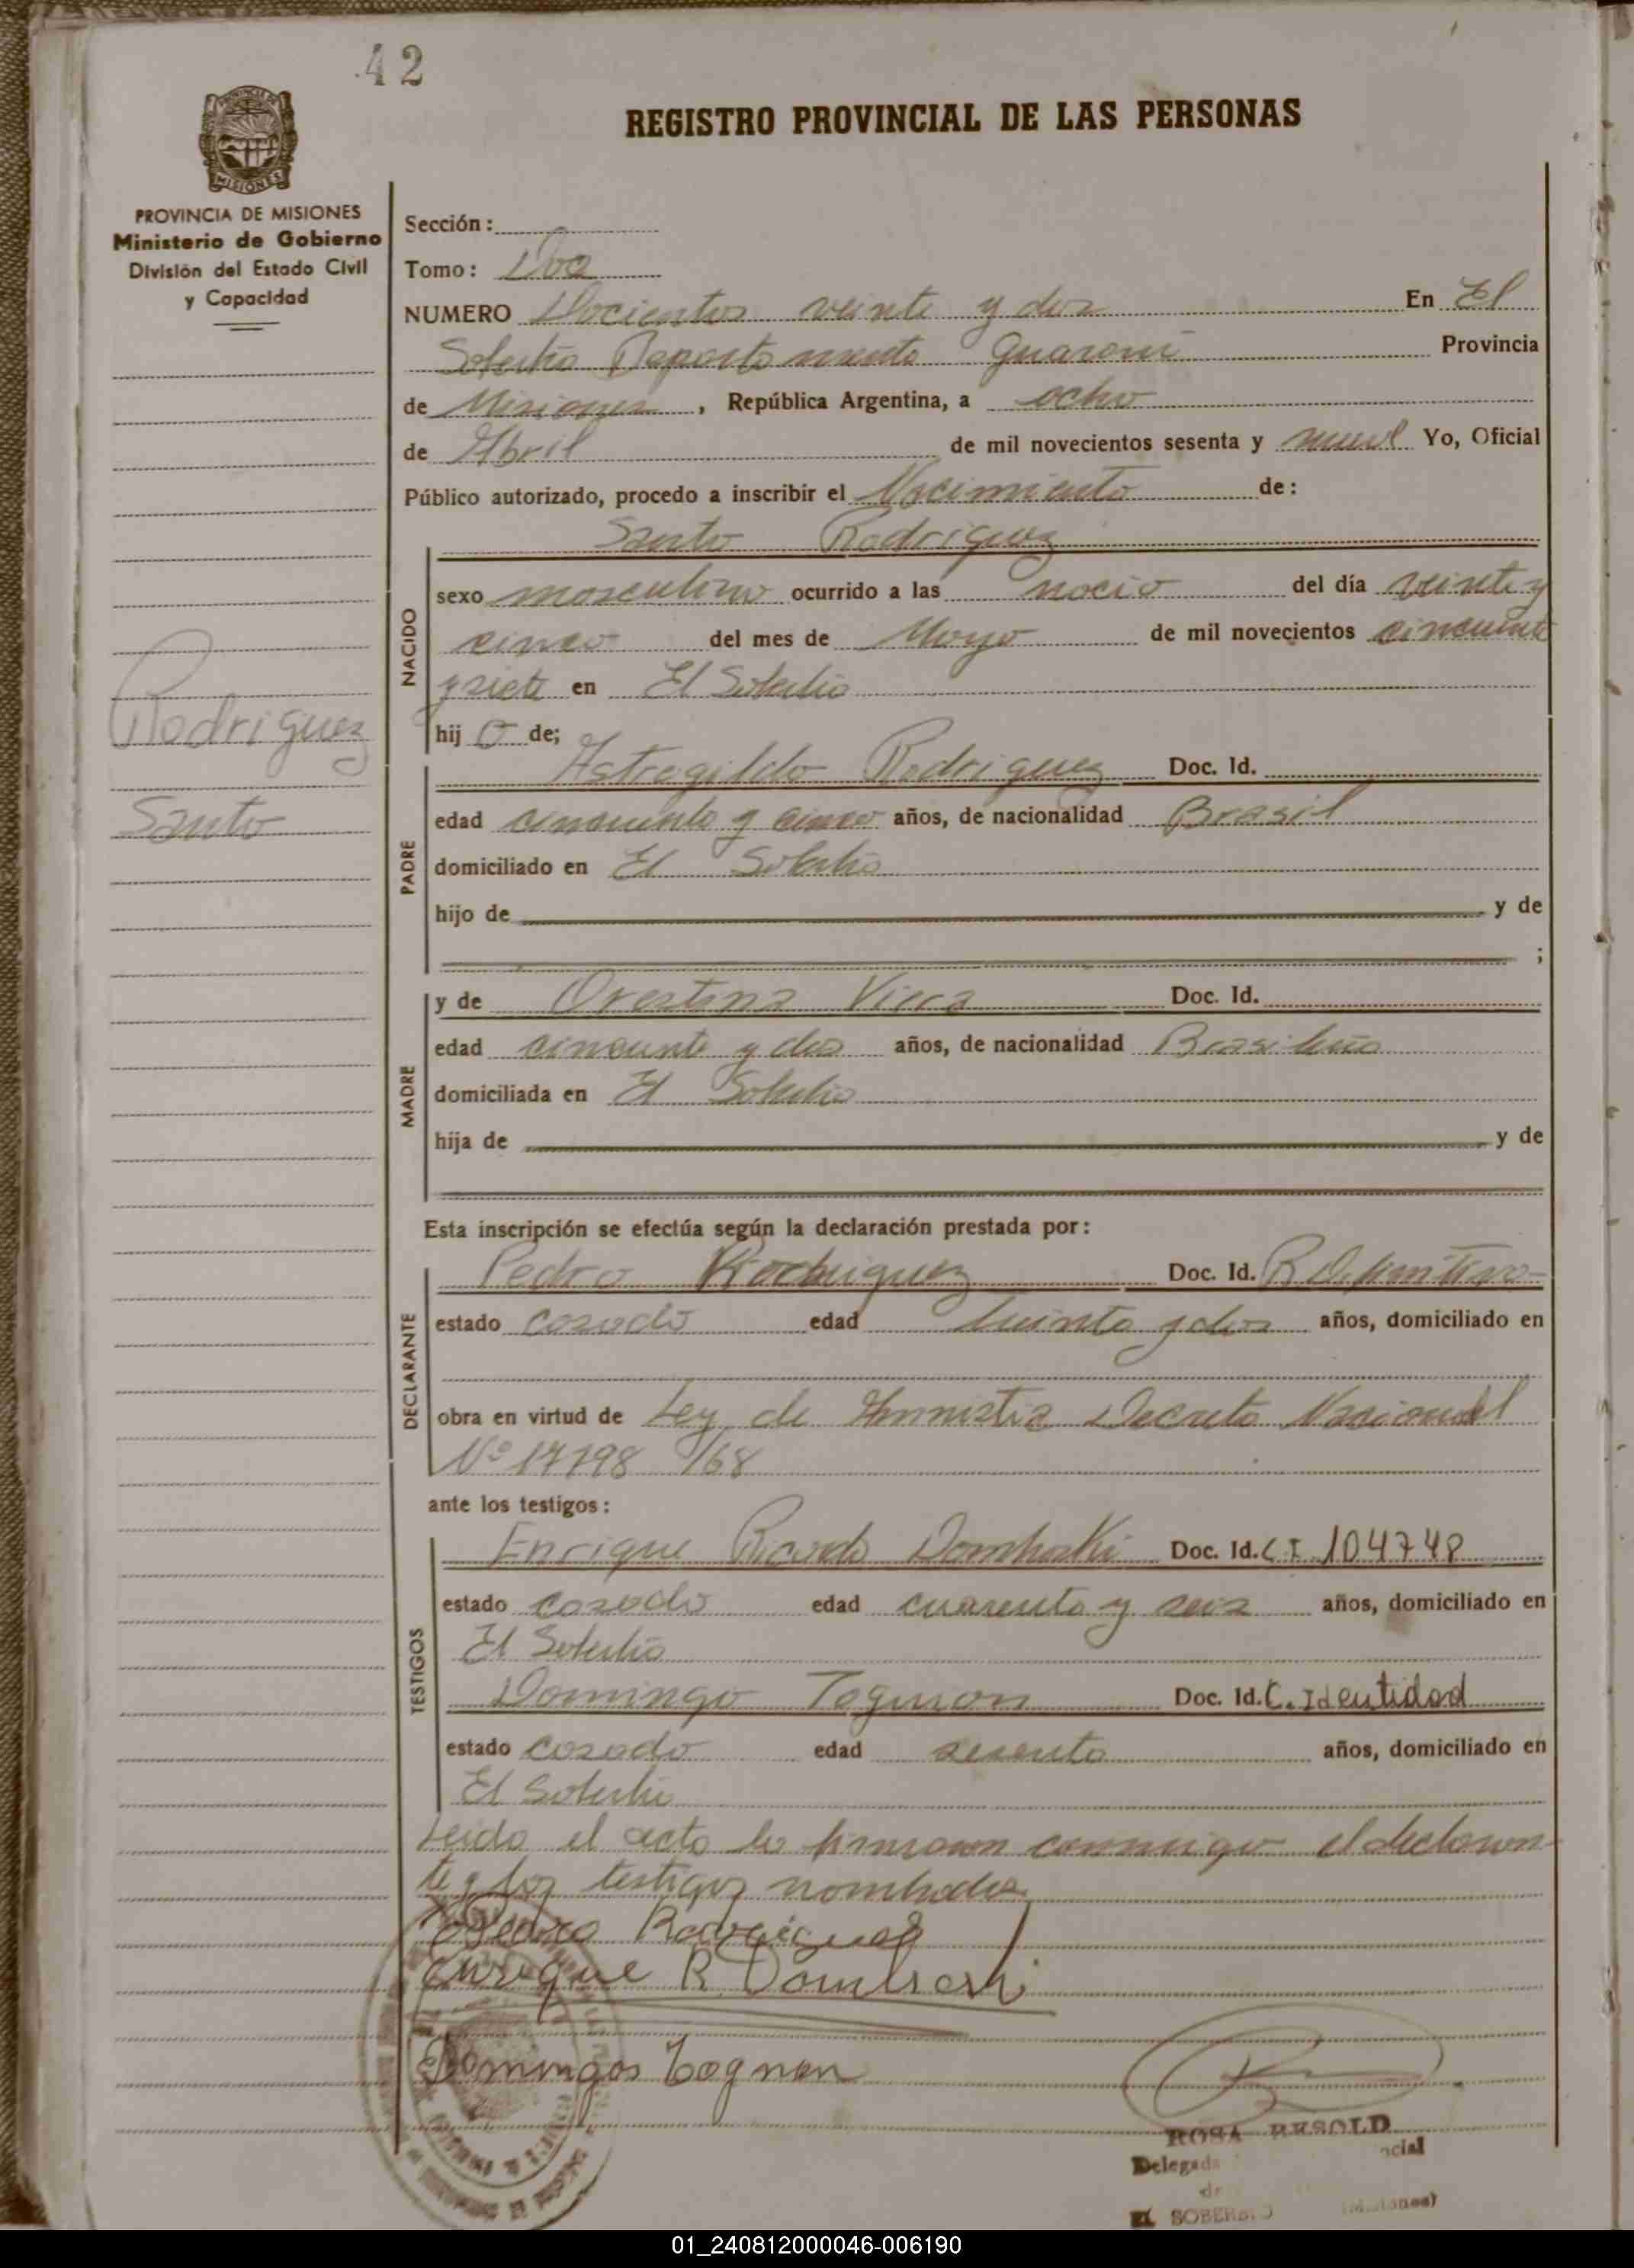 42
REGISTRO PROVINCIAL DE LAS PERSONAS
PROVINCIA DE MISIONES
MISIONES
PROVINCIA DE MISIONES
Ministerio de Gobierno
División del Estado Civil
y Capacidad
Sección:
Tomo: Dos
NUMERO Docientos veinte y dos En El
Soberbio Departamento Guarani Provincia
de Misiones, República Argentina, a ocho
de Abril de mil novecientos sesenta y nueve Yo, Oficial
Público autorizado, procedo a inscribir el Nacimiento de:
Santo Rodriguez
NACIDO
sexo masculino ocurrido a las nació del día veinte y
cinco del mes de Mayo de mil novecientos cincuenta
y siete en El Soberbio
hij o de;
Rodriguez
Santo
PADRE
Astrogildo Rodriguez Doc. Id.
edad cincuenta y cinco años, de nacionalidad Brasil
domiciliado en El Soberbio
hijo de y de
;
MADRE
y de Orestina Viera Doc. Id.
edad cincuenta y dos años, de nacionalidad Brasileña
domiciliada en El Soberbio
hija de y de
Esta inscripción se efectúa según la declaración prestada por:
DECLARANTE
Pedro Rodriguez Doc. Id.
estado casado edad y dos años, domiciliado en
obra en virtud de Ley de Amnistia Decreto Nacional
Nº 17798/68
ante los testigos:
TESTIGOS
Enrique Ricardo Domboski Doc. Id. C I 104748
estado casado edad cuarenta y seis años, domiciliado en
El Soberbio
Domingo Tognon Doc. Id. C. Identidad
estado casado edad sesenta años, domiciliado en
El Soberbio
Leida el acta la firmaron conmigo el declaran-
te y los testigos nombrados
Pedro Rodriguez
Enrique R. Domboski
Domingos Tognon
ROSA RESOLD
Delegada ncial
de
EL SOBERBIO (Misiones)
01_240812000046-006190